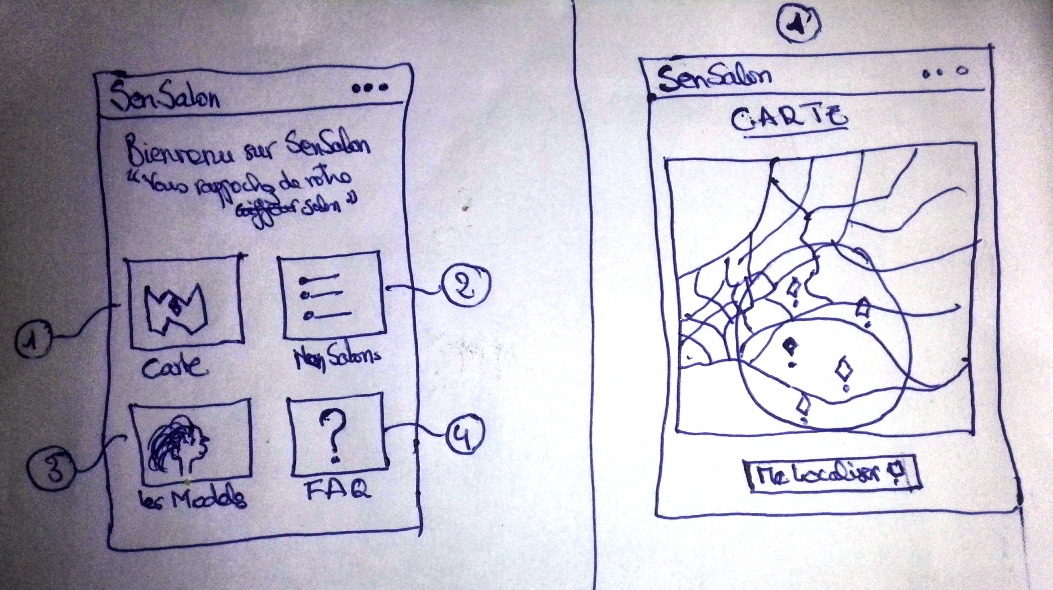 SenSalon
Bienvenu sur SenSalon
“Vous rapproche de votre
salon”
1
Carte
2
Salons
3
les Models
4
FAQ
1'
SenSalon
CARTE
Me Localiser